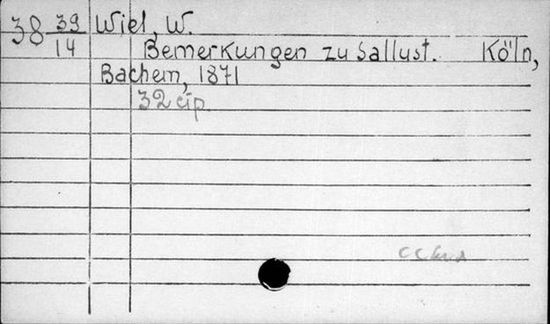 38 39/14 Wiel, W.
Bemerkungen zu Sallust. Köln,
Bachem, 1871